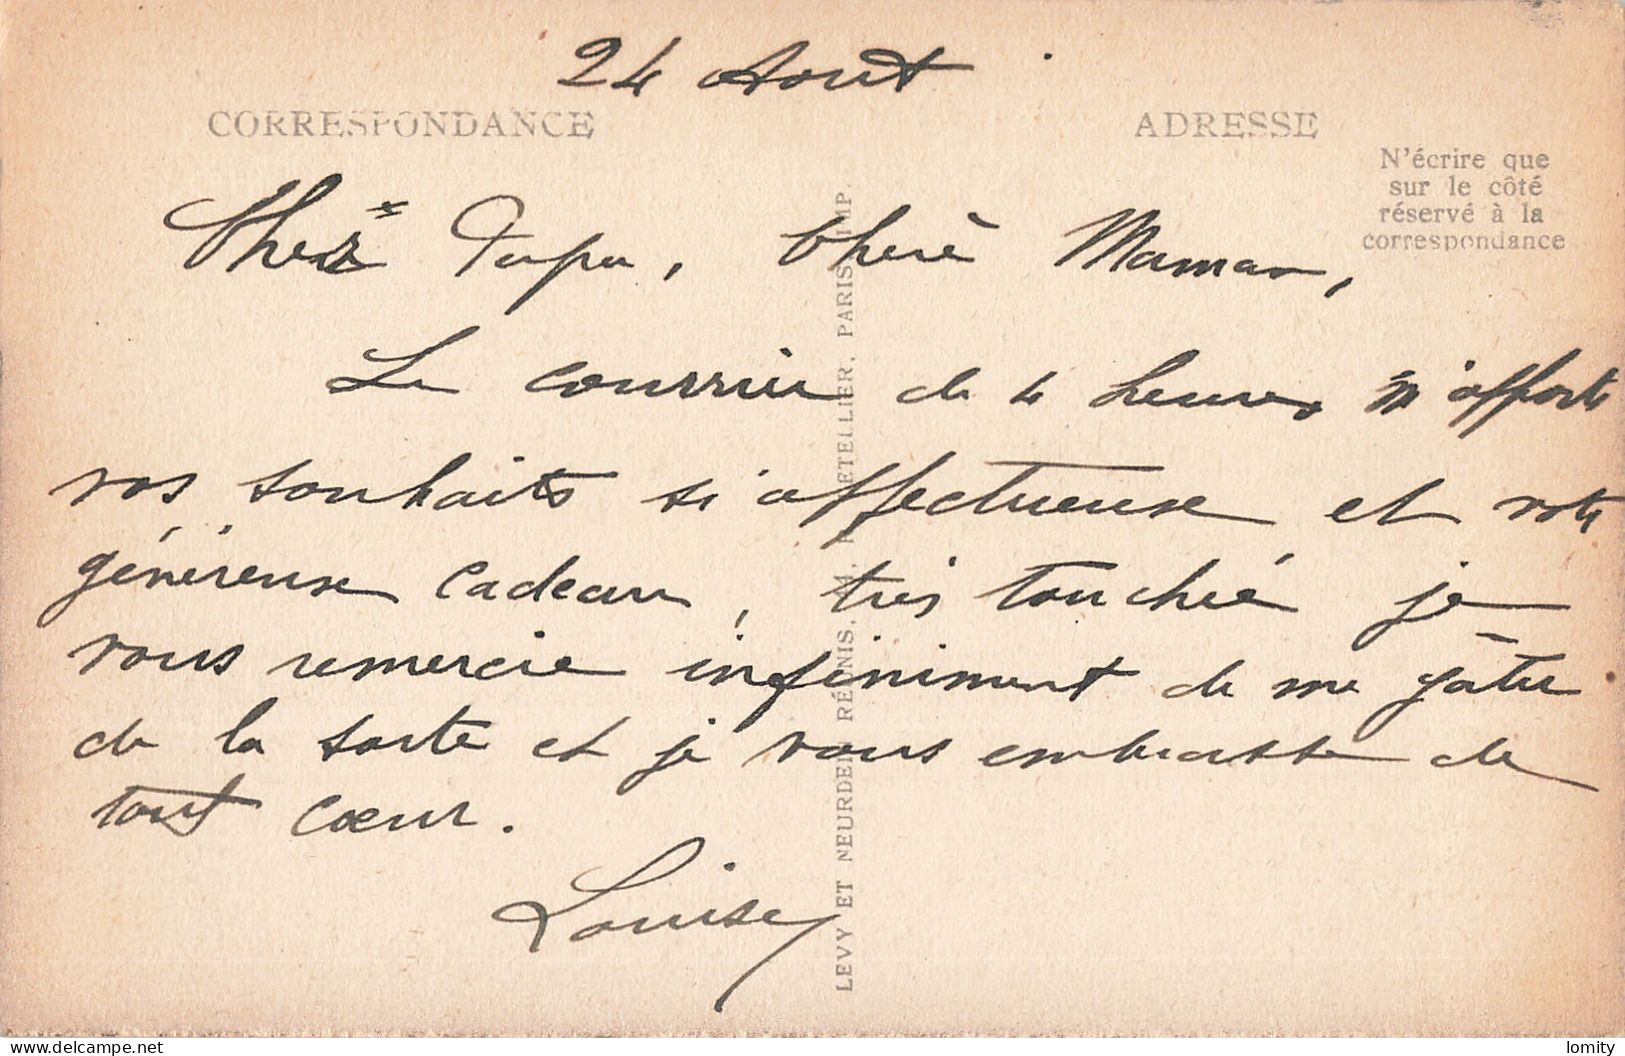 24 Aout
CORRESPONDANCE
ADRESSE
N'écrire que
sur le côté
réservé à la
correspondance
Cher Papa, Cherè Maman,
Le courrier de 4 heures m'apporte
vos souhaits si affectueuse et votre
généreuse cadeau, très touchée je
vous remercie infiniment de me gâter
de la sorte et je vous embrasse de
tout cœur.
Louise
LEVY ET NEURDEIN RÉUNIS, PARIS IMP.
delcampe.net
lomity